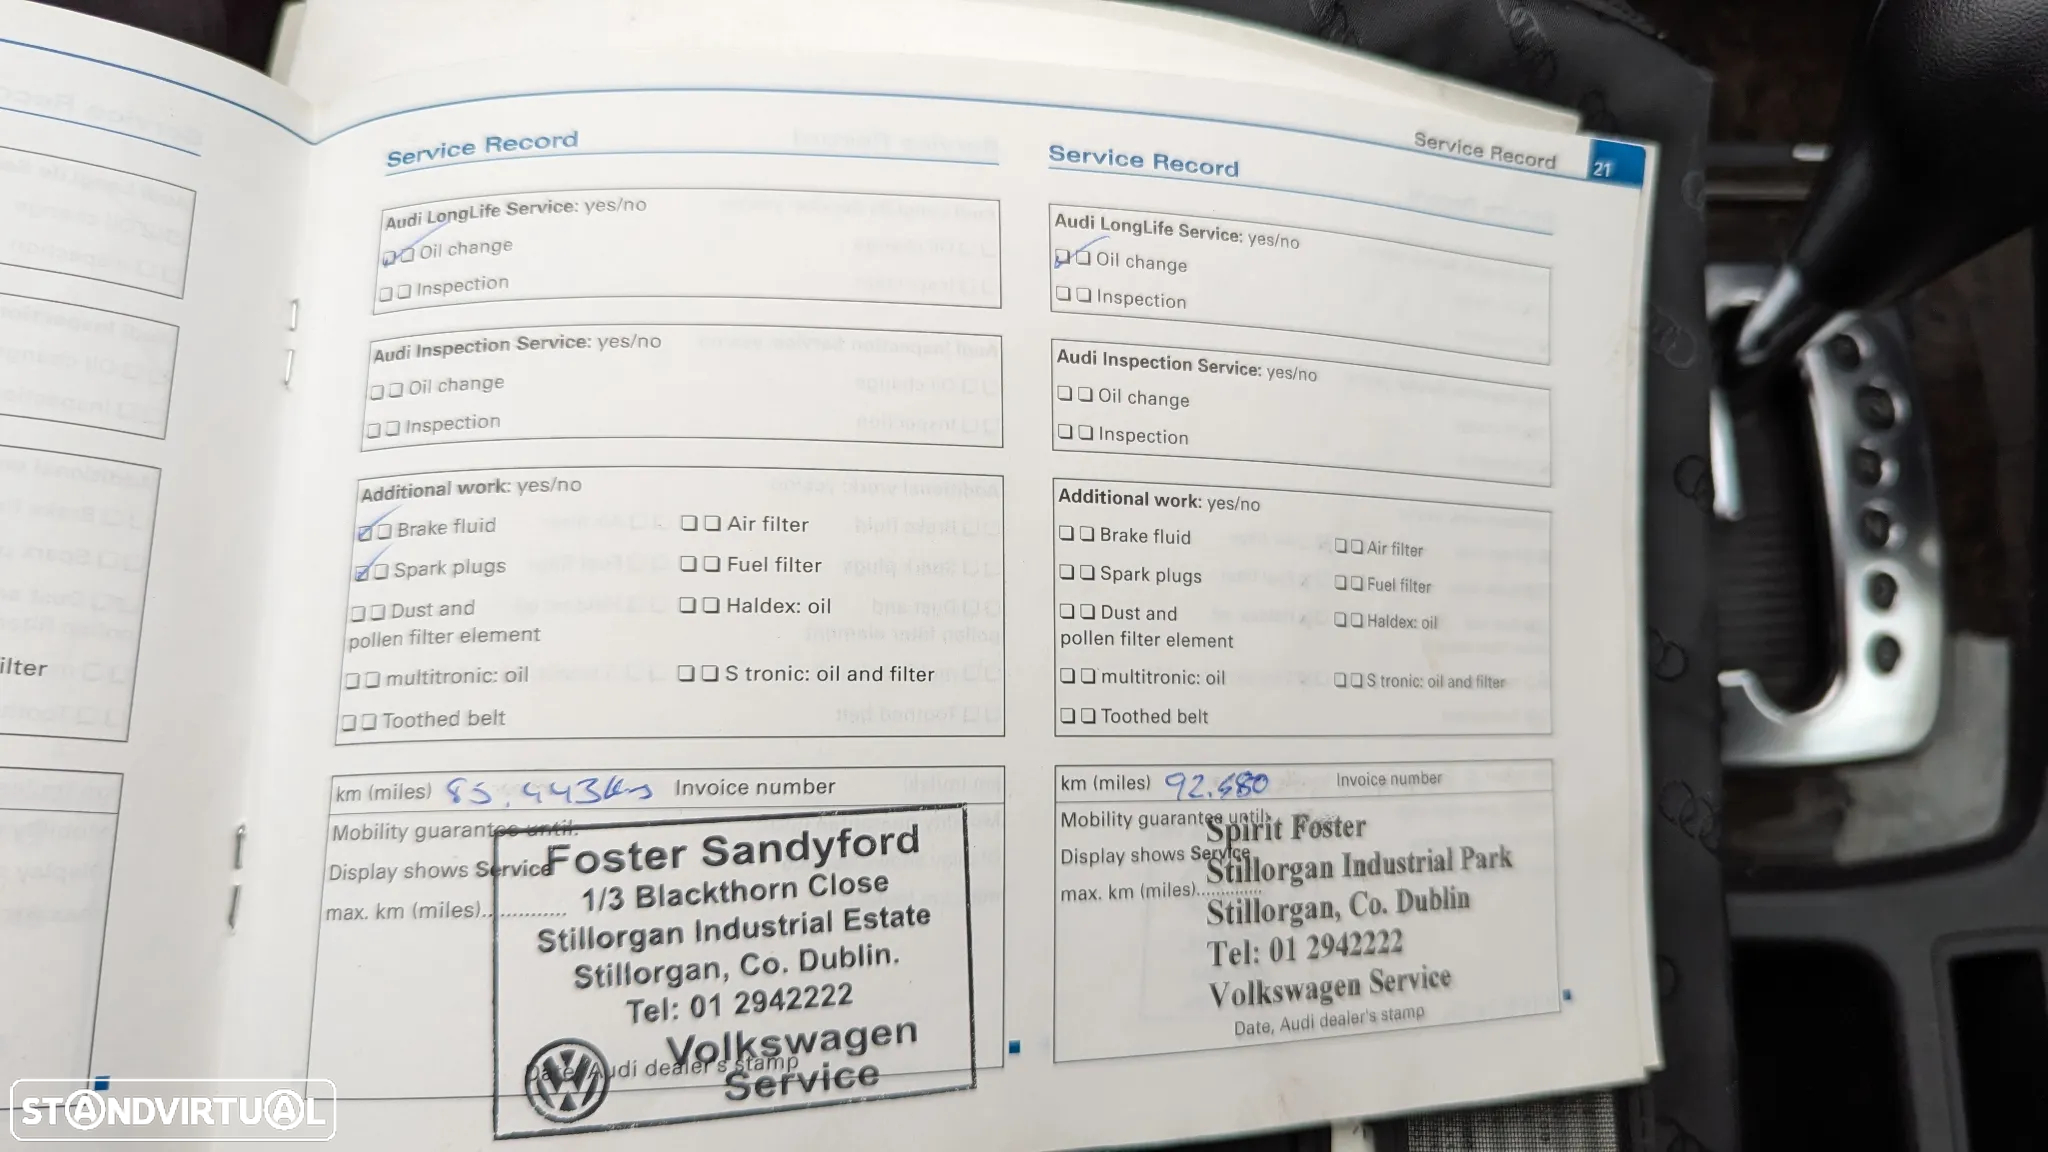 Service Record
21
Service Record
Audi LongLife Service: yes/no
Oil change
Inspection
Audi Inspection Service: yes/no
Oil change
Inspection
Additional work: yes/no
Brake fluid
Air filter
Spark plugs
Fuel filter
Dust and
pollen filter element
Haldex: oil
multitronic: oil
S tronic: oil and filter
Toothed belt
km (miles) 85.443kms Invoice number
Mobility guarantee until:
Display shows Service
max. km (miles)..............
Foster Sandyford
1/3 Blackthorn Close
Stillorgan Industrial Estate
Stillorgan, Co. Dublin.
Tel: 01 2942222
Volkswagen
Service
Date, Audi dealer's stamp
Service Record
Audi LongLife Service: yes/no
Oil change
Inspection
Audi Inspection Service: yes/no
Oil change
Inspection
Additional work: yes/no
Brake fluid
Air filter
Spark plugs
Fuel filter
Dust and
pollen filter element
Haldex: oil
multitronic: oil
S tronic: oil and filter
Toothed belt
km (miles) Invoice number
Mobility guarantee until:
Display shows Service
max. km (miles)..............
Spirit Foster
Stillorgan Industrial Park
Stillorgan, Co. Dublin
Tel: 01 2942222
Volkswagen Service
Date, Audi dealer's stamp
ilter
STANDVIRTUAL